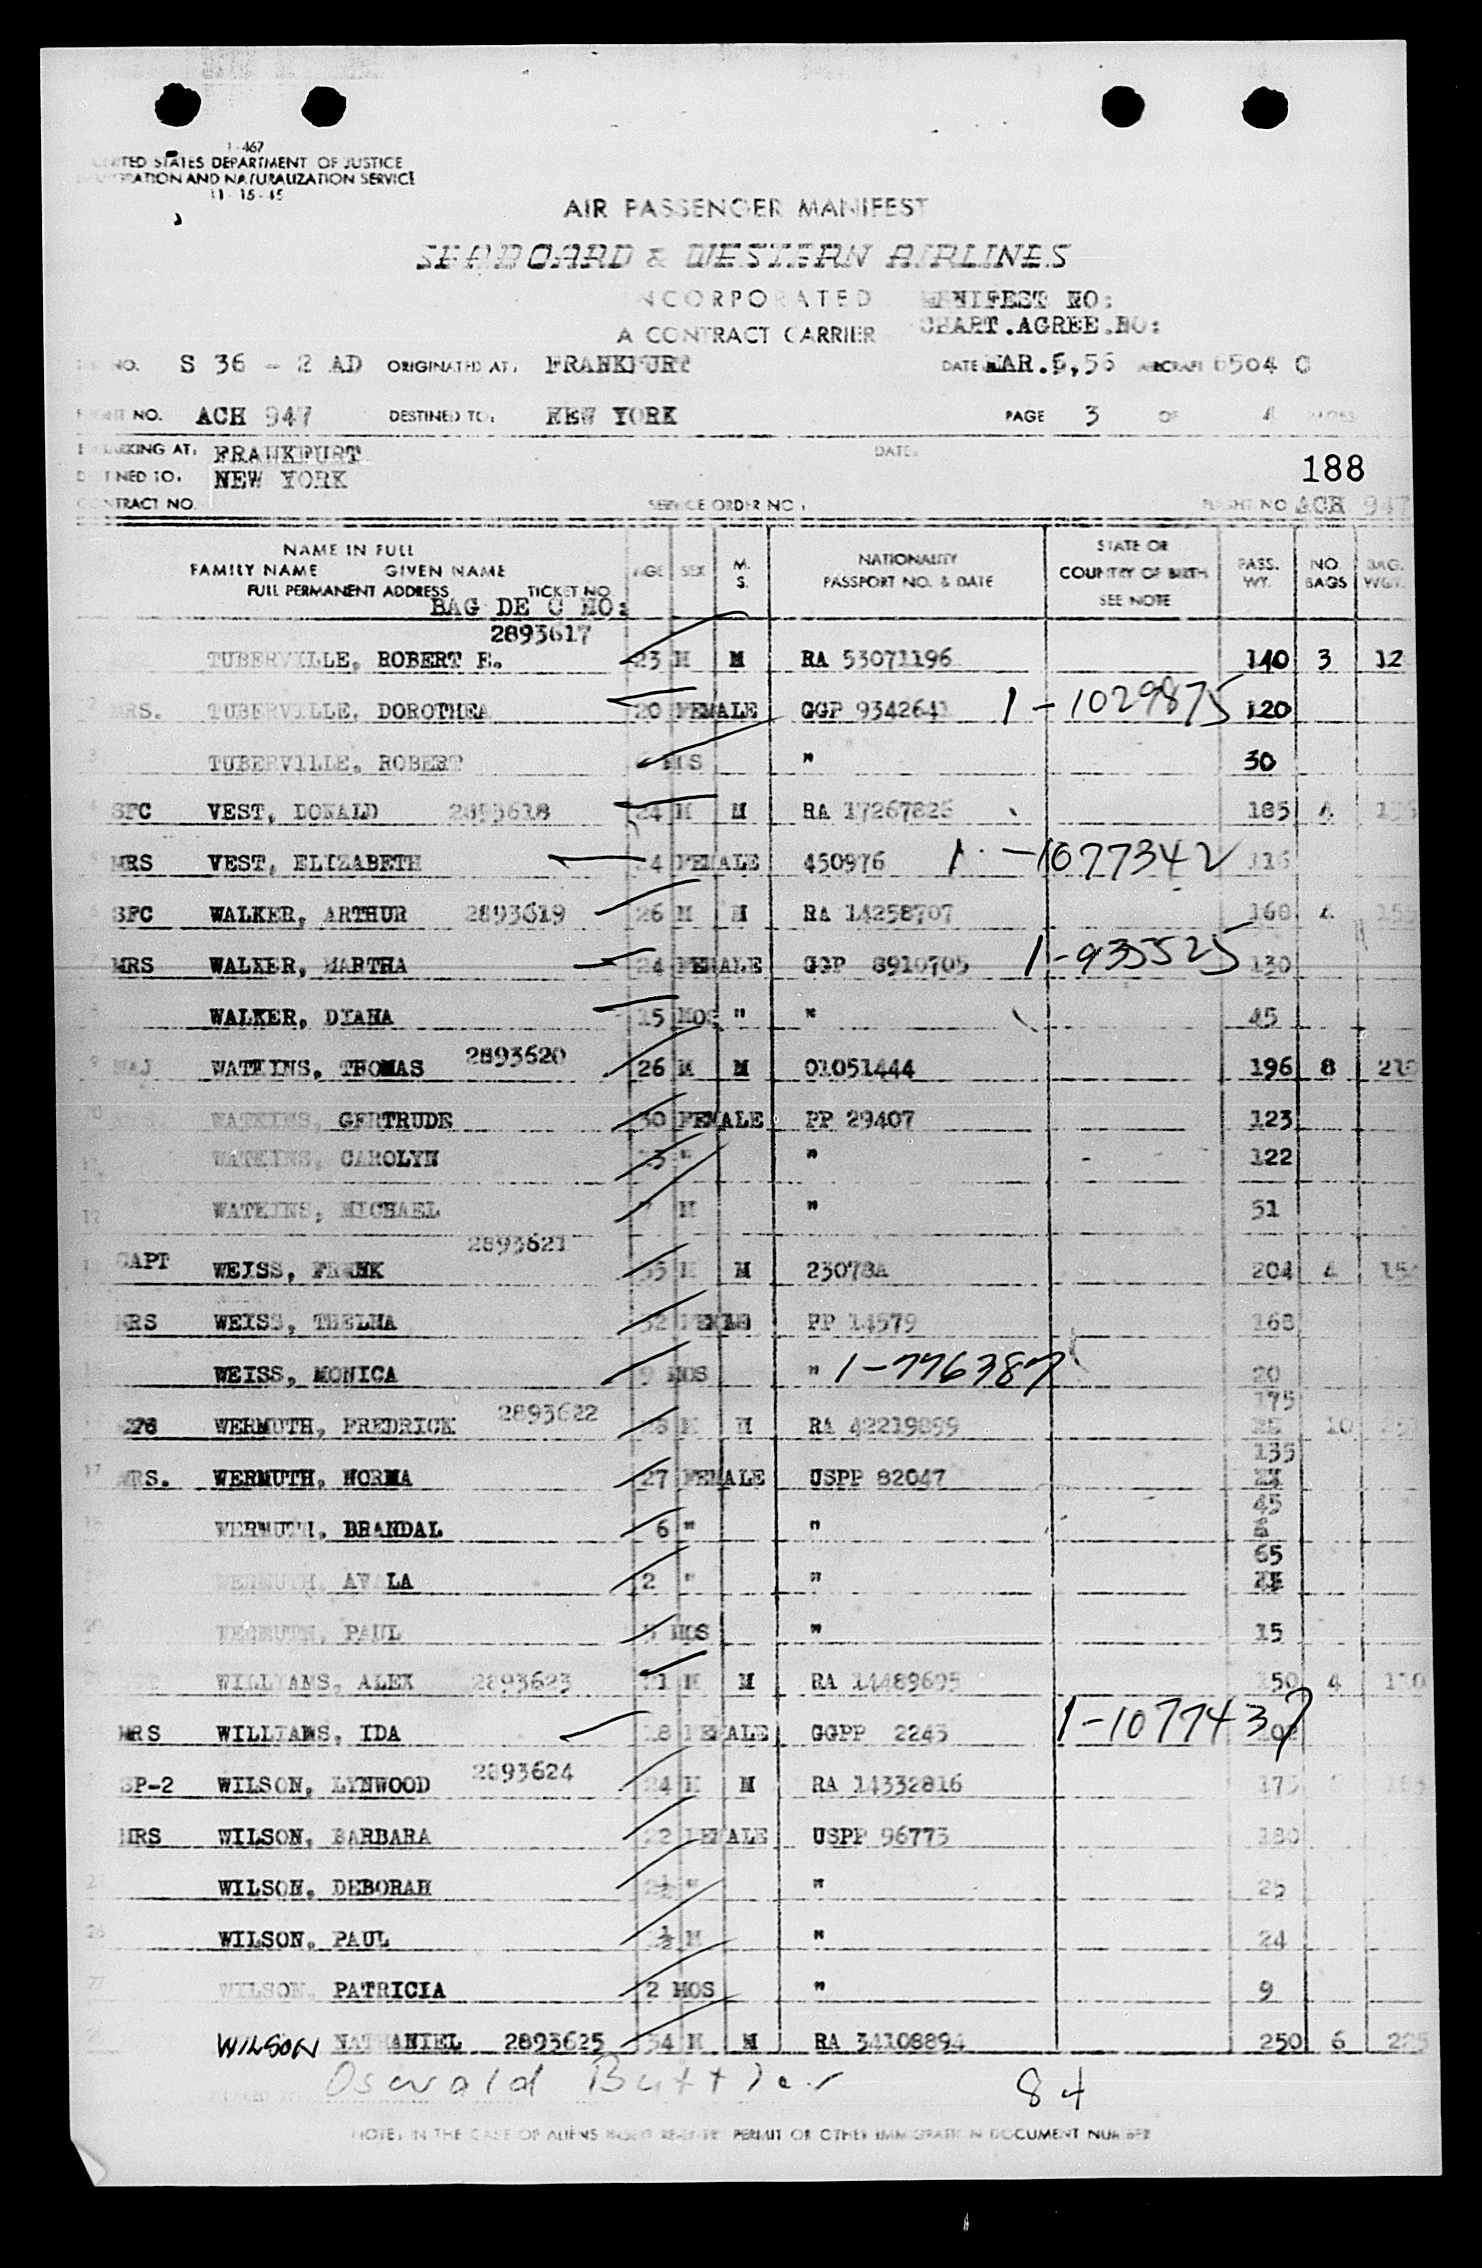 I-467
UNITED STATES DEPARTMENT OF JUSTICE
IMMIGRATION AND NATURALIZATION SERVICE
11-15-45
AIR PASSENGER MANIFEST
SEABOARD & WESTERN AIRLINES
INCORPORATED MANIFEST NO:
A CONTRACT CARRIER CHART.AGREE.NO:
NO. S 36 - 2 AD ORIGINATED AT: FRANKFURT DATE MAR.5,56 AIRCRAFT 6504 C
FLIGHT NO. ACH 947 DESTINED TO: NEW YORK PAGE 3 OF 4 PAGES
EMBARKING AT: FRANKFURT DATE:
DESTINED TO. NEW YORK 188
CONTRACT NO. SERVICE ORDER NO: FLIGHT NO ACH 947
NAME IN FULL
FAMILY NAME GIVEN NAME
FULL PERMANENT ADDRESS TICKET NO
BAG DE C NO:
AGE SEX M. S. NATIONALITY PASSPORT NO. & DATE STATE OR COUNTRY OF BIRTH SEE NOTE PASS. WT. NO. BAGS BAG. WGT.
2893617
TUBERVILLE, ROBERT E. 23 M M RA 53071196 140 3 12
2 MRS. TUBERVILLE, DOROTHEA 20 FEMALE GGP 9342641 1-1029875 120
3 TUBERVILLE, ROBERT MOS " 30
4 SFC VEST, DONALD 2893618 24 M M RA 17267826 185 4
5 MRS VEST, ELIZABETH 24 FEMALE 450976 1-1077342 116
6 SFC WALKER, ARTHUR 2893619 26 M M RA 14258707 160 4 155
7 MRS WALKER, MARTHA 24 FEMALE GGP 8910705 1-935525 130
WALKER, DIANA 15 MOS " " 45
9 MAJ WATKINS, THOMAS 2893620 26 M M 01051444 196 8 210
WATKINS, GERTRUDE 30 FEMALE PP 29407 123
WATKINS, CAROLYN 13 " " 122
12 WATKINS, MICHAEL 7 M " 51
2893621
CAPT WEISS, FRANK 35 M M 23078A 204 4
MRS WEISS, THELMA 32 FEMALE PP 14579 168
WEISS, MONICA 9 MOS " 1-776387 20
175
WERMUTH, FREDRICK 2893622 M M RA 42219869 10
135
17 MRS. WERMUTH, NORMA 27 FEMALE USPP 82047
45
WERMUTH, BRANDAL 6 " "
65
WERMUTH, AVALA 2 " "
20 WERMUTH, PAUL MOS " 15
WILLIAMS, ALEX 2893623 21 M M RA 14489695 150 4 110
MRS WILLIAMS, IDA 18 FEMALE GGPP 2243 1-1077437
SP-2 WILSON, LYNWOOD 2893624 24 M M RA 14332816 175
MRS WILSON, BARBARA 22 FEMALE USPP 96773 130
WILSON, DEBORAH 2½ " " 25
26 WILSON, PAUL 1½ M " 24
27 WILSON, PATRICIA 2 MOS " 9
28 WILSON NATHANIEL 2893625 34 M M RA 34108894 250 6 225
Oswald Buttler 84
NOTE: IN THE CASE OF ALIENS INSERT RE-ENTRY PERMIT OR OTHER IMMIGRATION DOCUMENT NUMBER